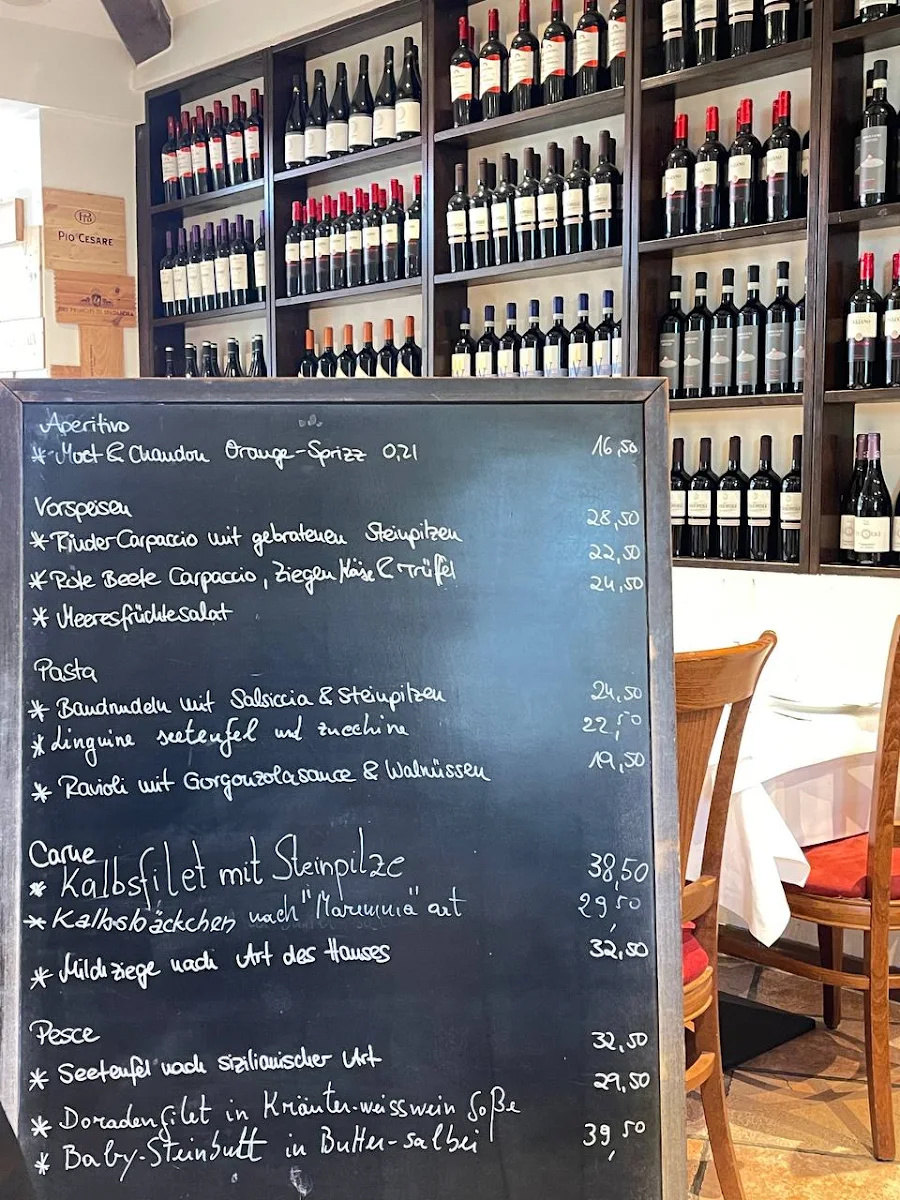 PIO CESARE
Aperitivo
* Moet & Chandon Orange-Sprizz 0,2l 16,50
Vorspeisen
* Rinder Carpaccio mit gebratenen Steinpilzen 28,50
* Rote Beete Carpaccio, Ziegen Käse & Trüffel 22,50
* Meeresfrüchtesalat 24,50
Pasta
* Bandnudeln mit Salsiccia & Steinpilzen 24,50
* Linguine seeteufel und zucchine 22,50
* Ravioli mit Gorgonzolasauce & Walnüssen 19,50
Carne
* Kalbsfilet mit Steinpilze 38,50
* Kalbsbäckchen nach "Maremma" art 29,50
* Milchziege nach Art des Hauses 32,50
Pesce
* Seeteufel nach sizilianischer Art 32,50
* Doradenfilet in Kräuter-weisswein Soße 29,50
* Baby-Steinbutt in Butter-salbei 39,50